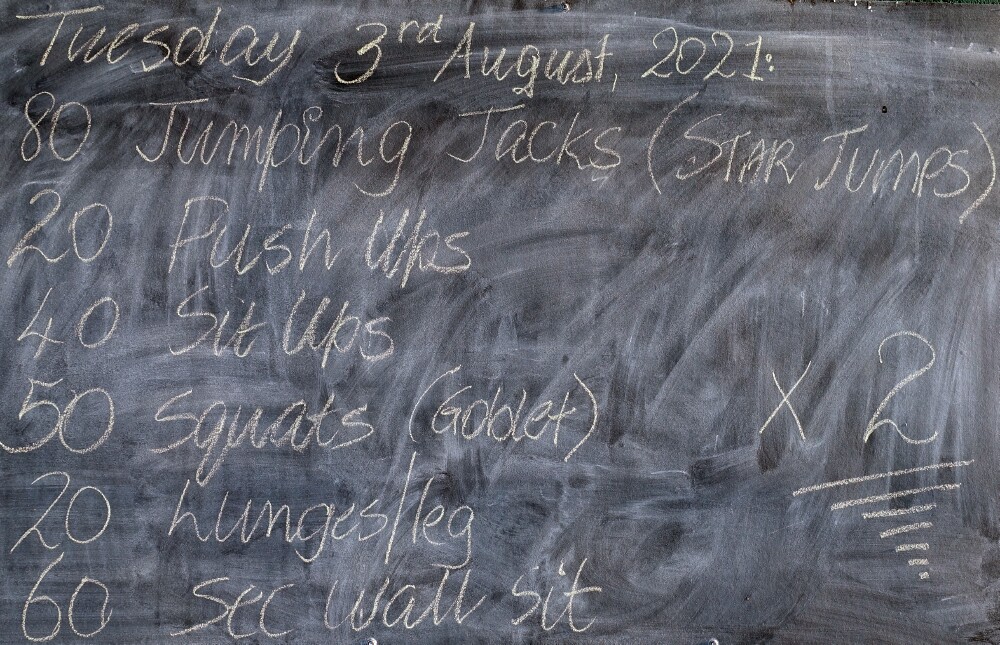 Tuesday 3rd August, 2021:
80 Jumping Jacks (STAR JUMPS)
20 Push Ups
40 Sit Ups
50 Squats (Goblet)
X 2
20 Lunges/leg
60 Sec Wall Sit